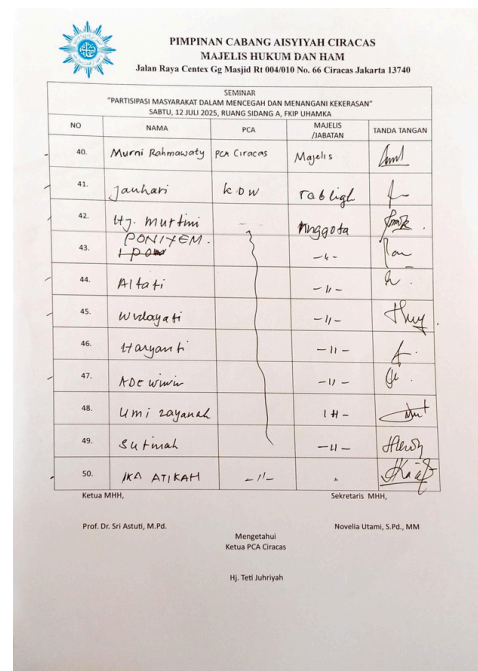 PIMPINAN CABANG AISYIYAH CIRACAS
MAJELIS HUKUM DAN HAM
Jalan Raya Centex Gg Masjid Rt 004/010 No. 66 Ciracas Jakarta 13740
SEMINAR
"PARTISIPASI MASYARAKAT DALAM MENCEGAH DAN MENANGANI KEKERASAN"
SABTU, 12 JULI 2025, RUANG SIDANG A, FKIP UHAMKA
NO NAMA PCA MAJELIS /JABATAN TANDA TANGAN
40. Murni Rahmawaty PCA Ciracas Majelis
41. Jauhari KDW Tabligh
42. Hj. Murtini Anggota
43. PONIYEM. -"-
44. Altati -"-
45. Widayati -"-
46. Haryanti -"-
47. ADE wiwin -"-
48. Umi zayanah -"-
49. Sutinah -"-
50. IKA ATIKAH -"-
Ketua MHH, Sekretaris MHH,
Prof. Dr. Sri Astuti, M.Pd. Novelia Utami, S.Pd., MM
Mengetahui
Ketua PCA Ciracas
Hj. Teti Juhriyah